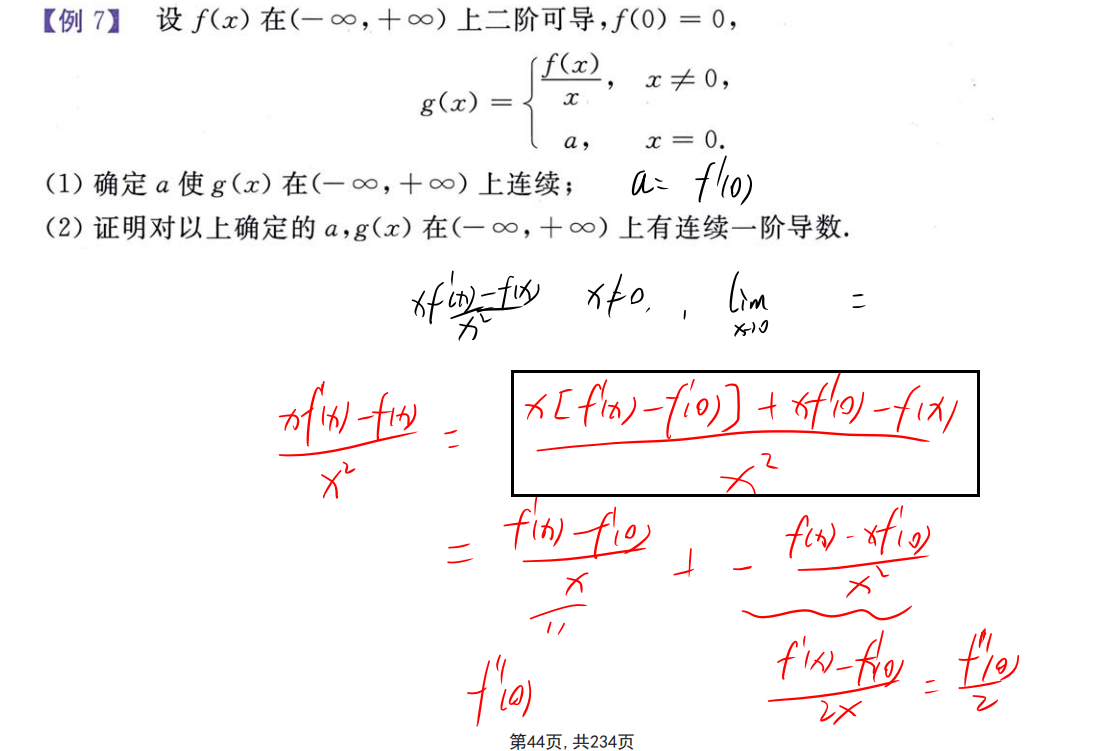 【例 7】 设 f(x) 在(-∞,+∞) 上二阶可导,f(0) = 0,
g(x) = { f(x)/x, x ≠ 0,
a, x = 0.
(1) 确定 a 使 g(x) 在(-∞,+∞) 上连续; a = f'(0)
(2) 证明对以上确定的 a,g(x) 在(-∞,+∞) 上有连续一阶导数.
(xf'(x)-f(x))/x² x≠0, , lim x→0 =
(xf'(x)-f(x))/x² = (x[f'(x)-f'(0)]+xf'(0)-f(x))/x²
= (f'(x)-f'(0))/x + - (f(x)-xf'(0))/x²
f''(0) (f'(x)-f'(0))/2x = f''(0)/2
第44页, 共234页